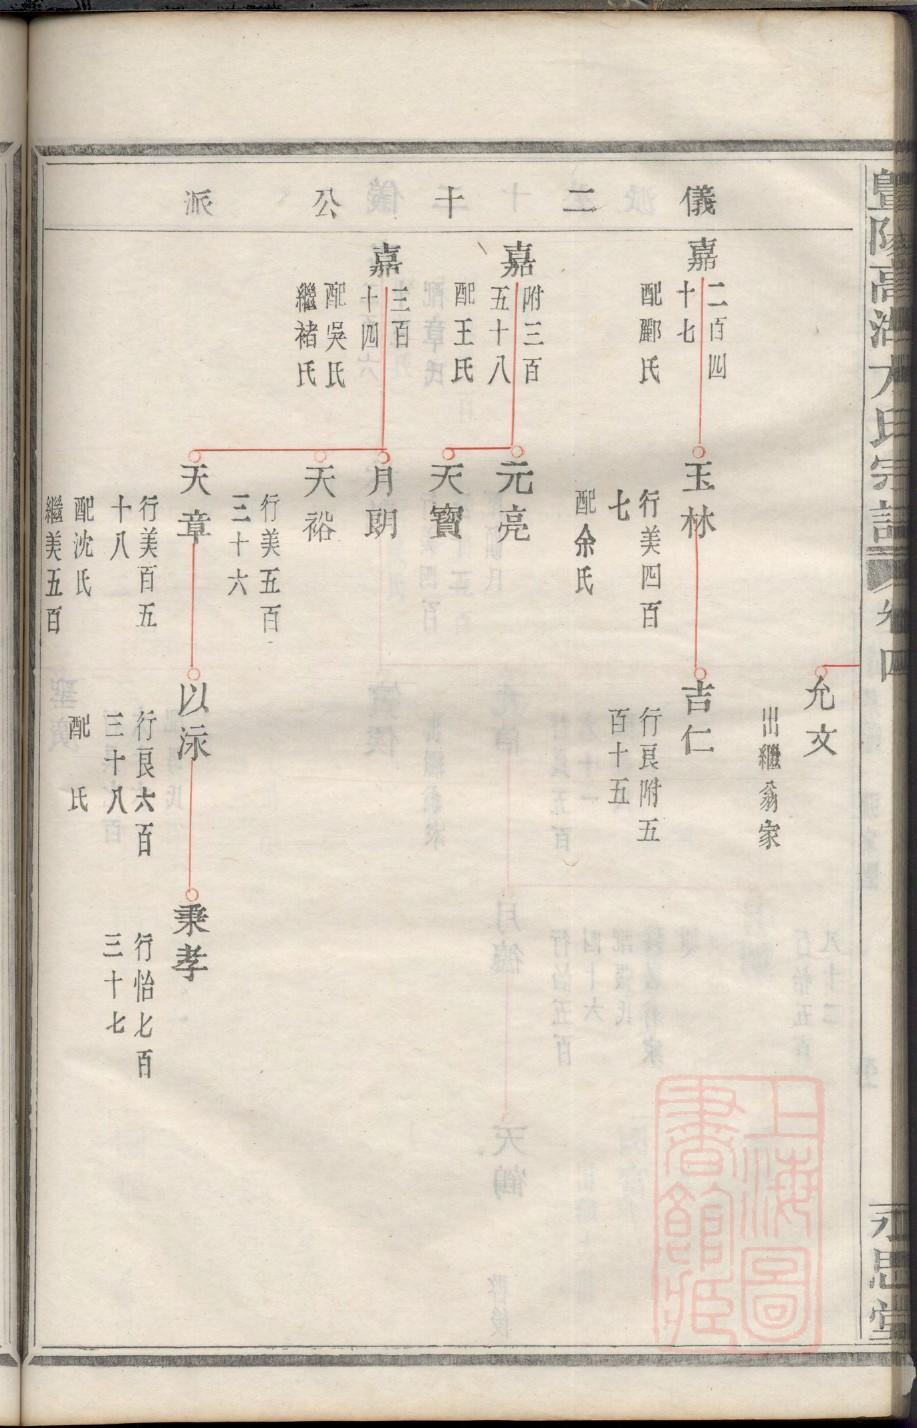 暨陽高湖方氏宗譜
卷四
永思堂
儀二十公派
允文
出繼翁家
嘉
二百四
十七
配酈氏
玉林
行美四百
七
配余氏
吉仁
行良附五
百十五
嘉
附三百
五十八
配王氏
元亮
天寶
嘉
三百
十四
配吳氏
繼褚氏
月朗
天裕
行美五百
三十六
天章
行美百五
十八
配沈氏
繼美五百
以泳
行良六百
三十八
配 氏
秉孝
行怡七百
三十七
上海圖
書館藏